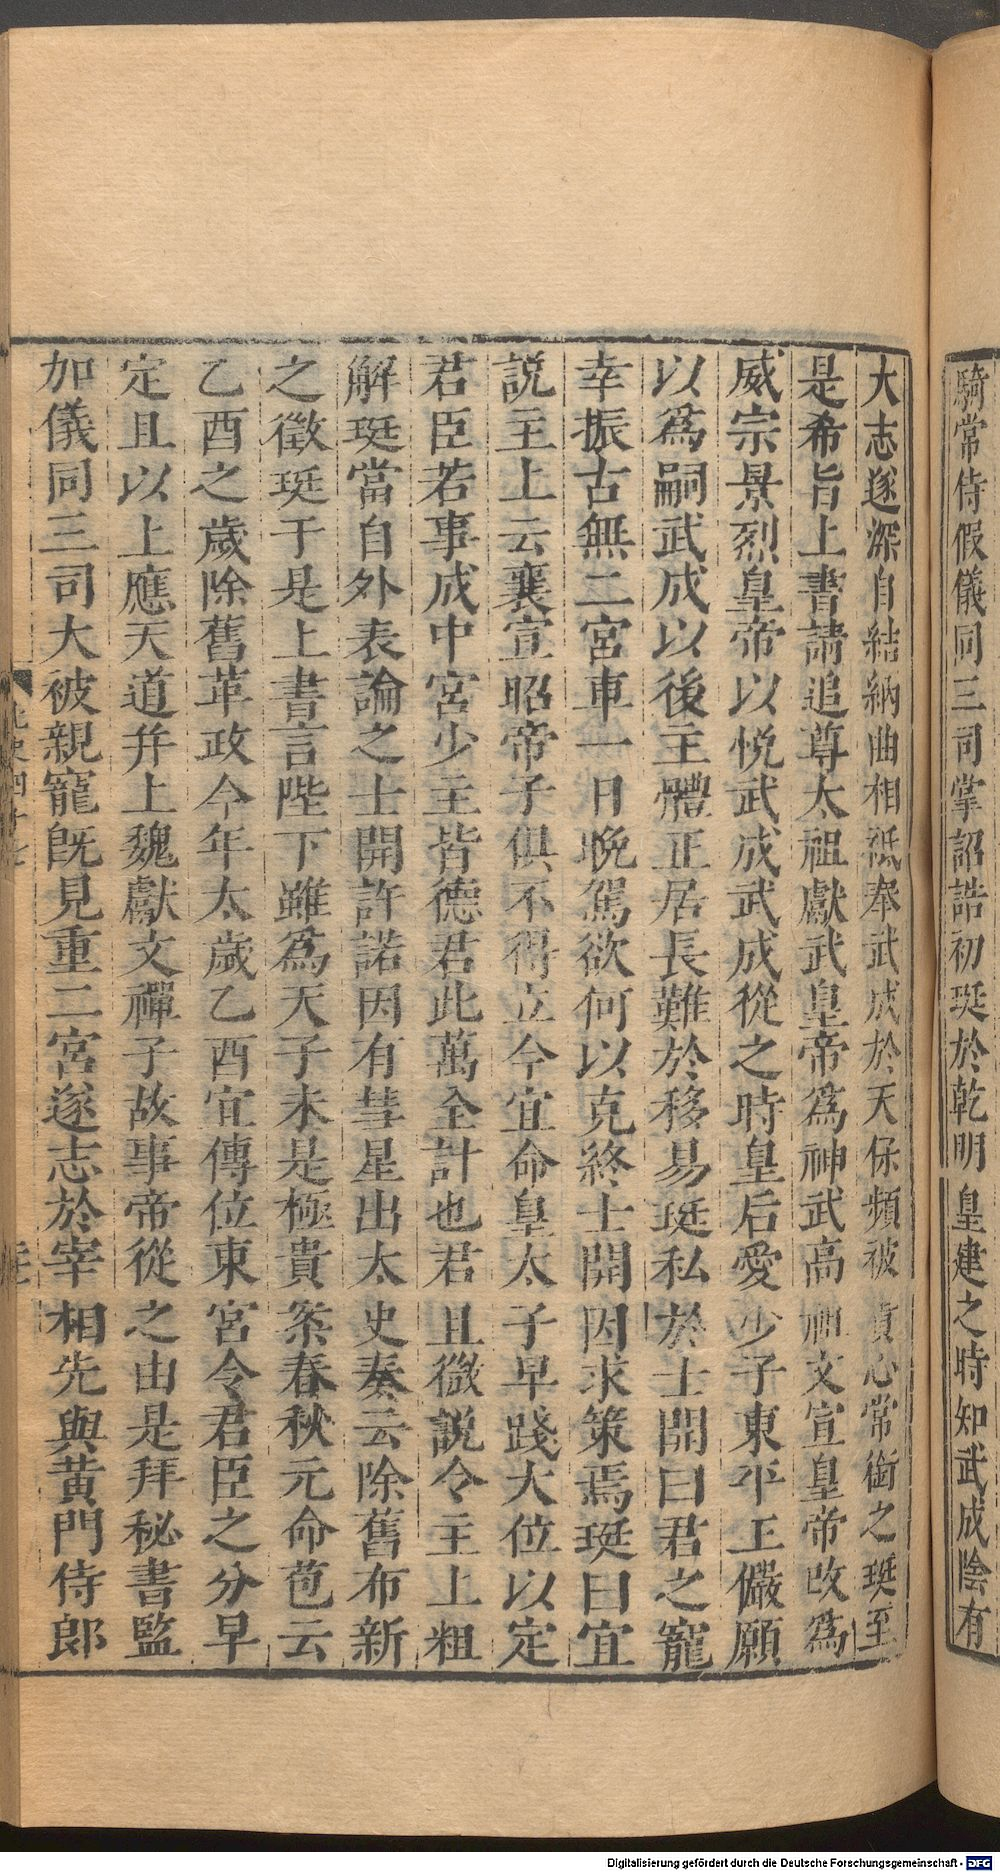 騎常侍假儀同三司掌詔誥初珽於乾明皇建之時知武成陰有
大志遂深自結納曲相祗奉武成於天保頻被責心常銜之珽至
是希旨上書請追尊太祖獻武皇帝爲神武高祖文宣皇帝改爲
威宗景烈皇帝以悅武成武成從之時皇后愛少子東平王儼願
以爲嗣武成以後主體正居長難於移易珽私於士開曰君之寵
幸振古無二宮車一日晚駕欲何以克終士開因求策焉珽曰宜
説主上云襄宣昭帝子俱不得立今宜命皇太子早踐大位以定
君臣若事成中宮少主皆德君此萬全計也君且微説令主上粗
解珽當自外表論之士開許諾因有彗星出太史奏云除舊布新
之徵珽于是上書言陛下雖爲天子未是極貴案春秋元命苞云
乙酉之歲除舊革政今年太歲乙酉宜傳位東宮令君臣之分早
定且以上應天道幷上魏獻文禪子故事帝從之由是拜秘書監
加儀同三司大被親寵旣見重二宮遂志於宰相先與黃門侍郎
北史四十七
Digitalisierung gefördert durch die Deutsche Forschungsgemeinschaft - DFG